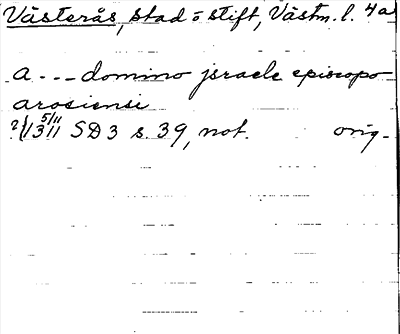 Västerås, stad o stift, Västm. l. 4a
a - - - domino jsraele episcopo
arosiensi
5/11
1311 SD 3 s. 39, not. orig.